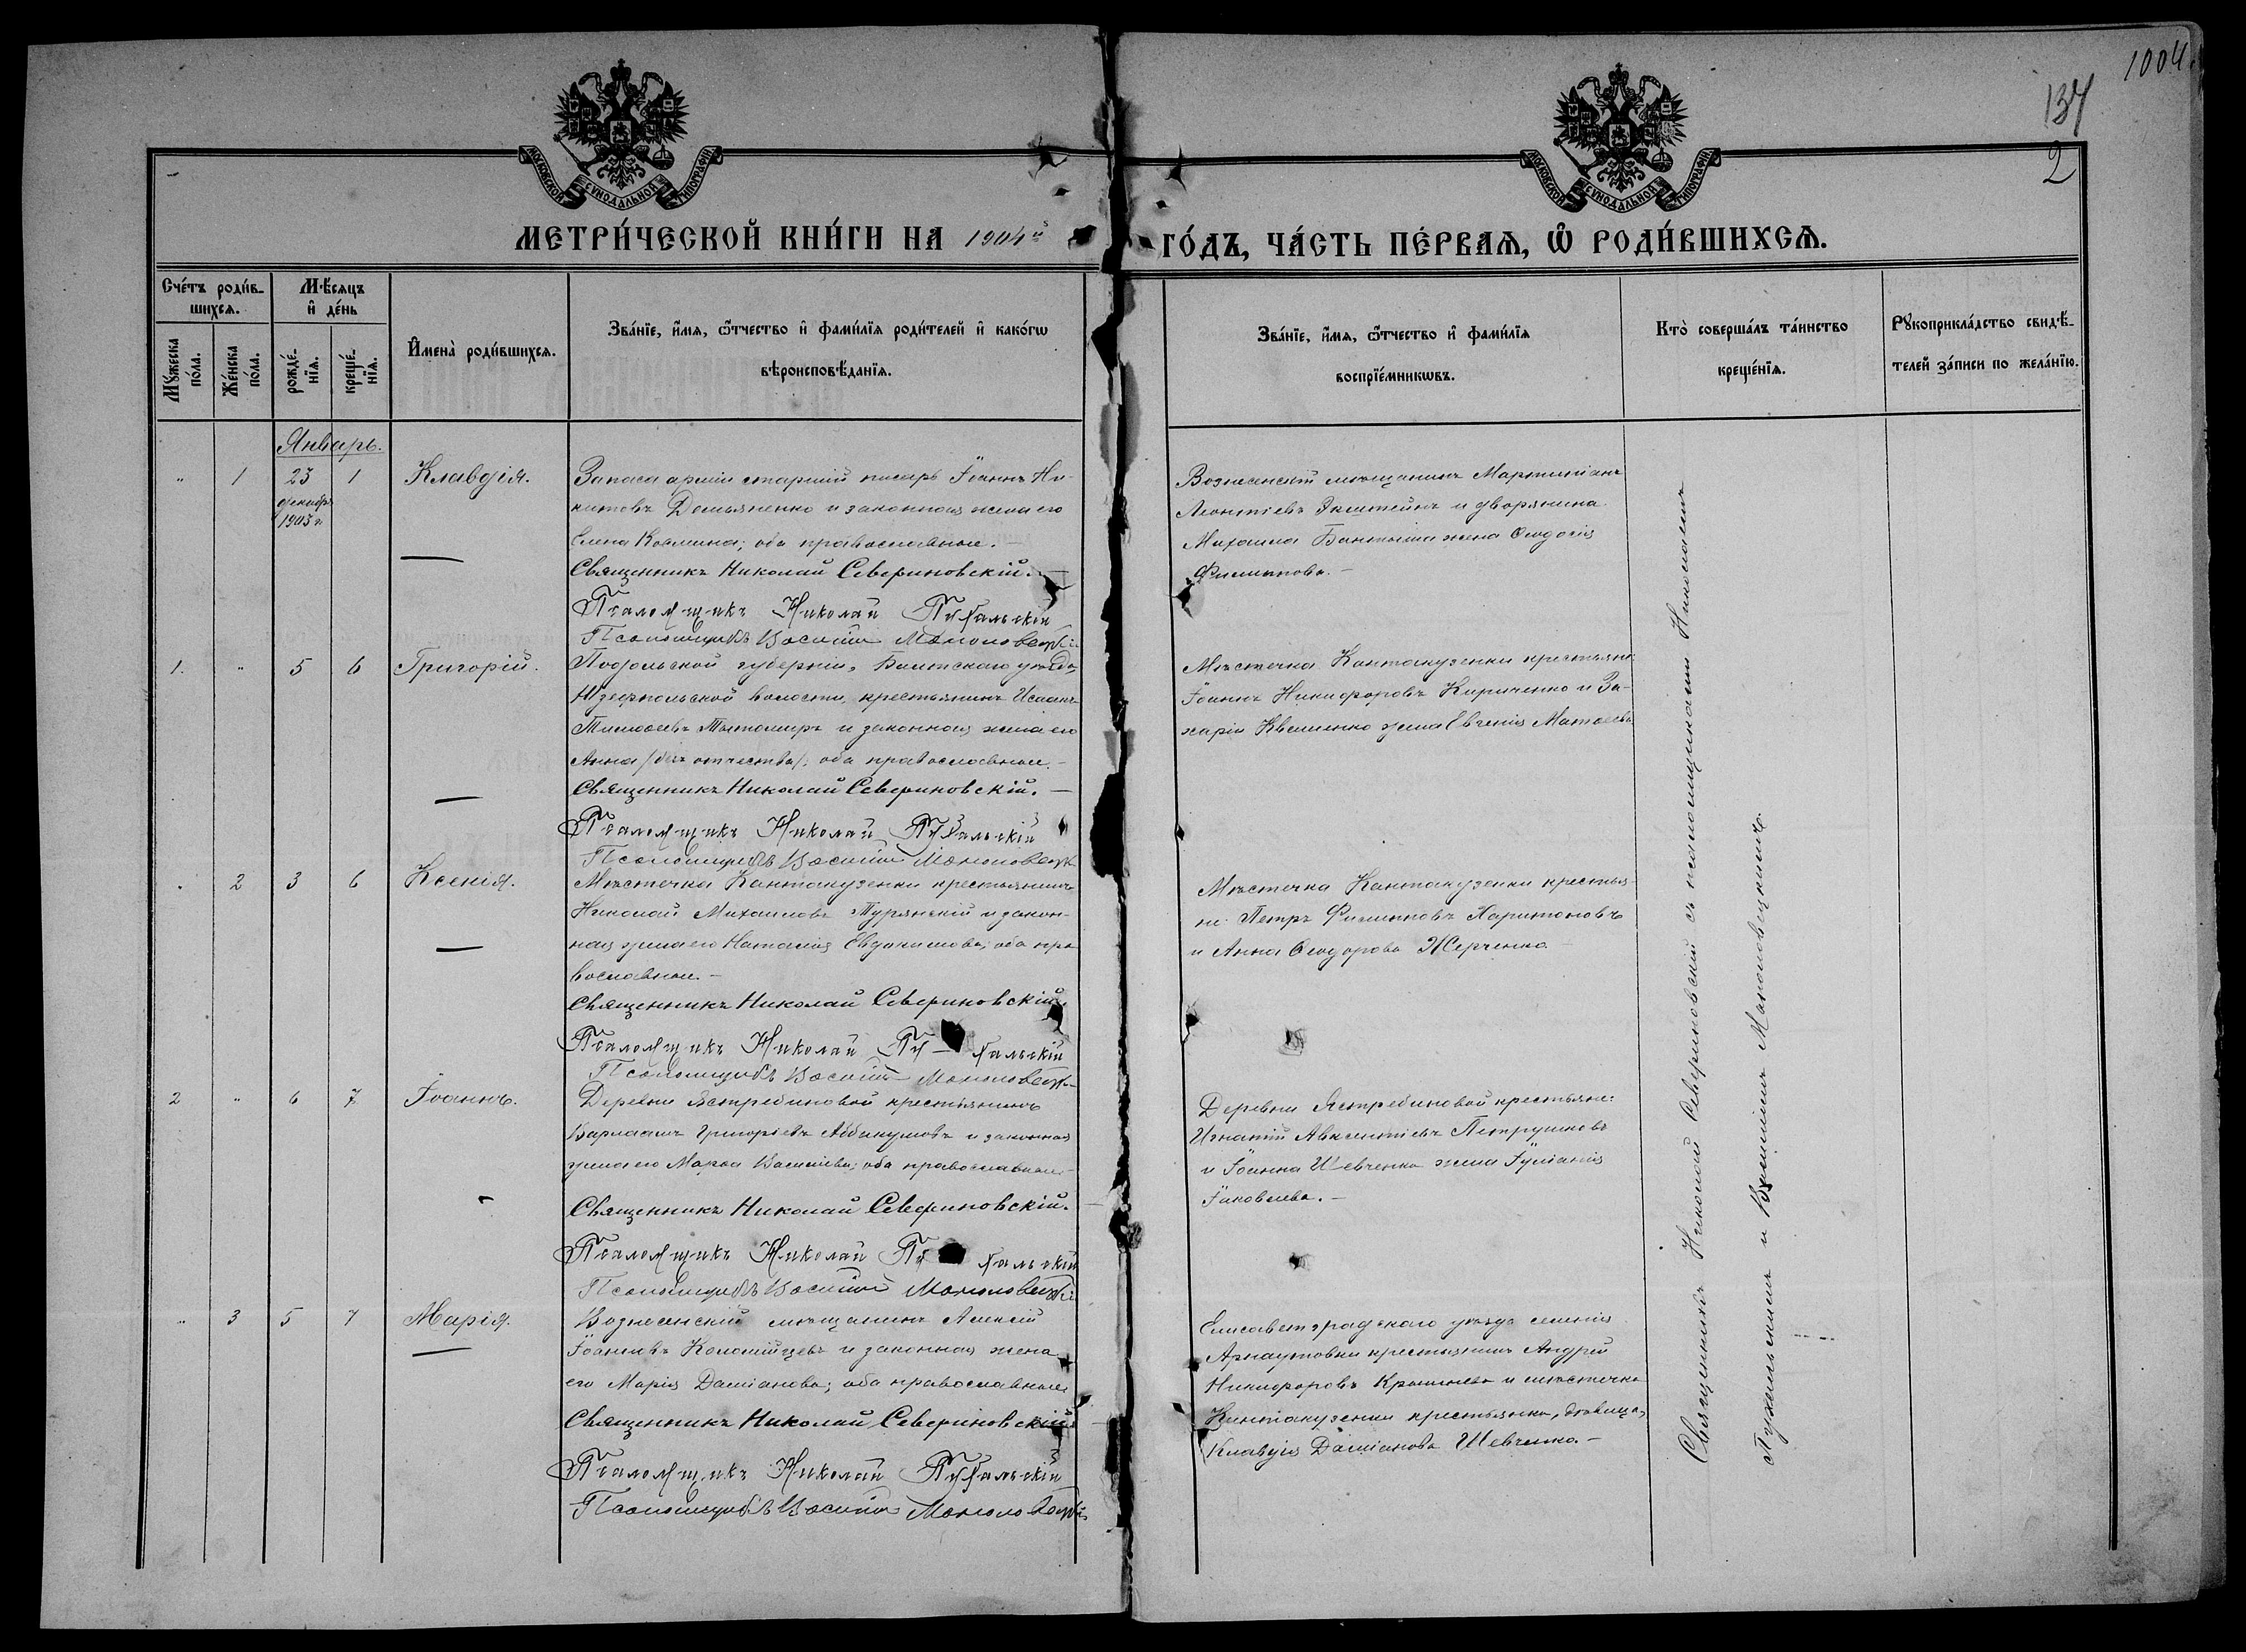 1004.
134
2
МОСКОВСКОЙ СѴНОДАЛЬНОЙ ТИПОГРАФІИ
МОСКОВСКОЙ СѴНОДАЛЬНОЙ ТИПОГРАФІИ
МЕТРИ́ЧЕСКОЙ КНИ́ГИ НА 1904й ГО́ДЪ, ЧА́СТЬ ПЕ́РВАѦ, Ѽ РОДИ́ВШИХСѦ.
Сче́тъ роди́в-
шихсѧ.
Мꙋ́жеска по́ла.
Же́нска по́ла.
Мѣ́сѧцъ
и҆ де́нь
рожде́-
нїѧ.
креще́-
нїѧ.
И҆мена̀ роди́вшихсѧ.
Зва́нїе, и҆́мѧ, ѻ҆́тчество и҆ фами́лїѧ роди́телей и҆ како́гѡ
вѣроисповѣ́данїѧ.
Зва́нїе, и҆́мѧ, ѻ҆́тчество и҆ фами́лїѧ
воспрїе́мникѡвъ.
Кто̀ соверша́лъ та́инство
креще́нїѧ.
Рꙋкоприкла́дство свидѣ́-
телей за́писи по жела́нїю.
Январь.
" 1 23 1 Клавдія.
декабря
1903 г.
Запаса арміи старшій писарь Іоаннъ Ни-
китовъ Демьяненко и законная жена его
Елена Космина; оба православные.
Священникъ Николай Севериновскій.
Псаломщикъ Николай Пухальскій
Псаломщикъ Василій Маноловецкій
Вознесенскій мѣщанинъ Мартиніанъ
Леонтіевъ Экштейнъ и дворянина
Михаила Бантыша жена Ѳеодосія
Филиппова.
1. " 5 6 Григорій.
Подольской губерніи, Балтскаго уѣзда,
Юзефпольской волости, крестьянинъ Исаакъ
Тимоѳеевъ Тытомиръ и законная жена его
Анна (безъ отчества); оба православные.
Священникъ Николай Севериновскій.
Псаломщикъ Николай Пухальскій
Псаломщикъ Василій Маноловецкій
Мѣстечка Кантакузенки крестьяне:
Іоаннъ Никифоровъ Кириченко и За-
харіи Квашенко жена Евгенія Матѳеева
" 2 3 6 Ксенія.
Мѣстечка Кантакузенки крестьянинъ
Николай Михаиловъ Турянскій и закон-
ная жена его Наталія Евдокимова; оба пра-
вославные.
Священникъ Николай Севериновскій.
Псаломщикъ Николай Пухальскій
Псаломщикъ Василій Маноловецкій
Мѣстечка Кантакузенки крестья-
не: Петръ Филипповъ Харитоновъ
и Анна Ѳеодорова Жерченко.
2 " 6 7 Іоаннъ.
Деревни Ястребиновой крестьянинъ
Варлаамъ Григоріевъ Аввакумовъ и законная
жена его Марѳа Василіева; оба православные.
Священникъ Николай Севериновскій.
Псаломщикъ Николай Пухальскій
Псаломщикъ Василій Маноловецкій
Деревни Ястребиновой крестьяне:
Игнатій Авксентіевъ Петрушковъ
и Іоанна Шевченко жена Іуліанія
Іаковлева.
" 3 5 7 Марія.
Вознесенскій мѣщанинъ Алексій
Іоанновъ Коломійцевъ и законная жена
его Марія Даміанова; оба православные
Священникъ Николай Севериновскій
Псаломщикъ Николай Пухальскій
Псаломщикъ Василій Маноловецкій
Елисаветградскаго уѣзда селенія
Арнаутовки крестьянинъ Андрей
Никифоровъ и мѣстечка
Кантакузенки крестьянка, дѣвица,
Клавдія Даміанова Шевченко.
Священникъ Николай Севериновскій съ псаломщиками Николаемъ
Пухальскимъ и Василіемъ Маноловецкимъ.